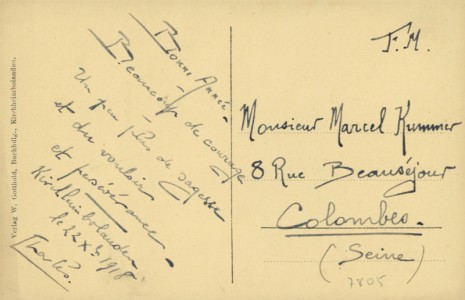 Verlag W. Gotthold, Buchhdlg., Kirchheimbolanden.
Bonne Année -
Beaucoup de courage
Un peu plus de sagesse
et du vouloir
et persévérance -
Kirchheimbolanden
le 22 Xbre 1918
Charles.
F.M.
Monsieur Marcel Kummer
8 Rue Beauséjour
Colombes.
(Seine)
7805